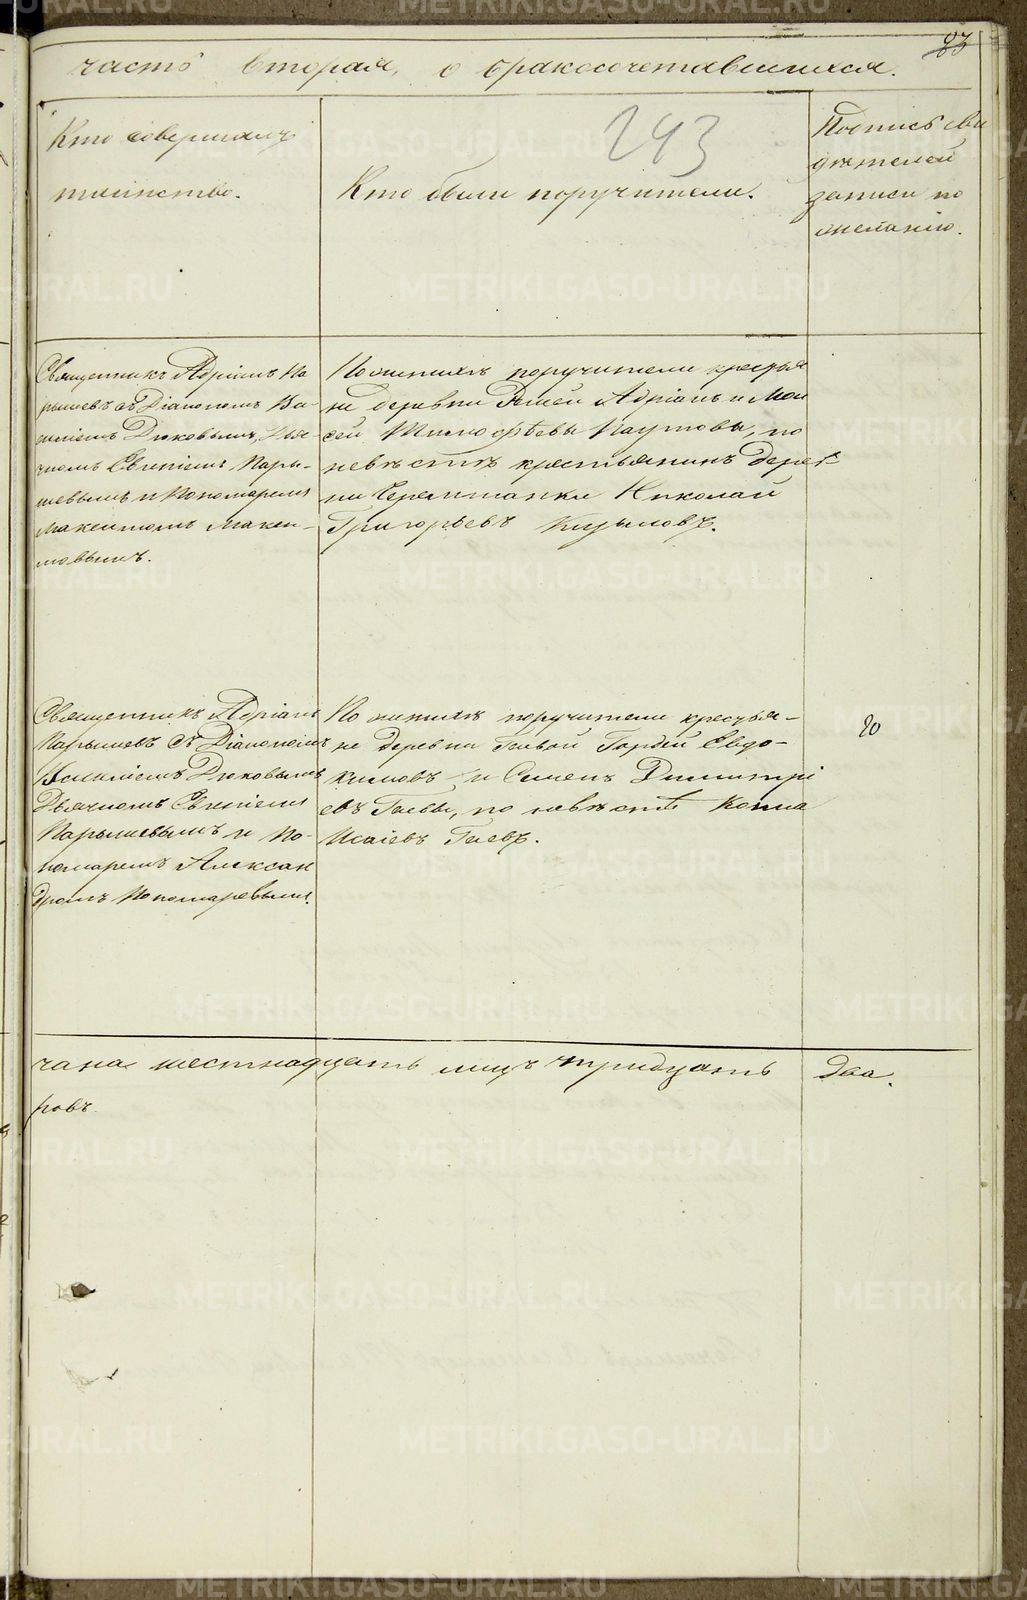 83
часть вторая, о бракосочетавшихся.
243
Кто совершалъ
таинство.
Кто были поручители.
Подпись сви
дѣтелей
записи по
желанію.
Священникъ Адріанъ Па
рышевъ съ Діакономъ Ва-
силіемъ Дюковымъ, Дья
чкомъ Евгеніемъ Пары-
шевымъ и Пономаремъ
Макентомъ
По женихѣ поручители крестья
не деревни Адріанъ и Мои
сей Тимофѣевы Паутовы, по
невѣстѣ крестьянинъ Дерев-
ни Черемшанки Николай
Григорьевъ
Священникъ Адріанъ
Парышевъ съ Діакономъ
Василіемъ Дюковымъ
Дьячкомъ Евгеніемъ
Парышевымъ и По-
номаремъ Алексан
дромъ Пономаревымъ.
По женихѣ поручители крестья-
не деревни Гаевой Гордѣй Евдо-
кимовъ и Семенъ Димитрі
евъ Гаевы, по невѣстѣ
Исаіевъ Гаевъ.
20
чана шестнадцать лицъ тридцать два.
ровъ.
METRIKI.GASO-URAL.RU